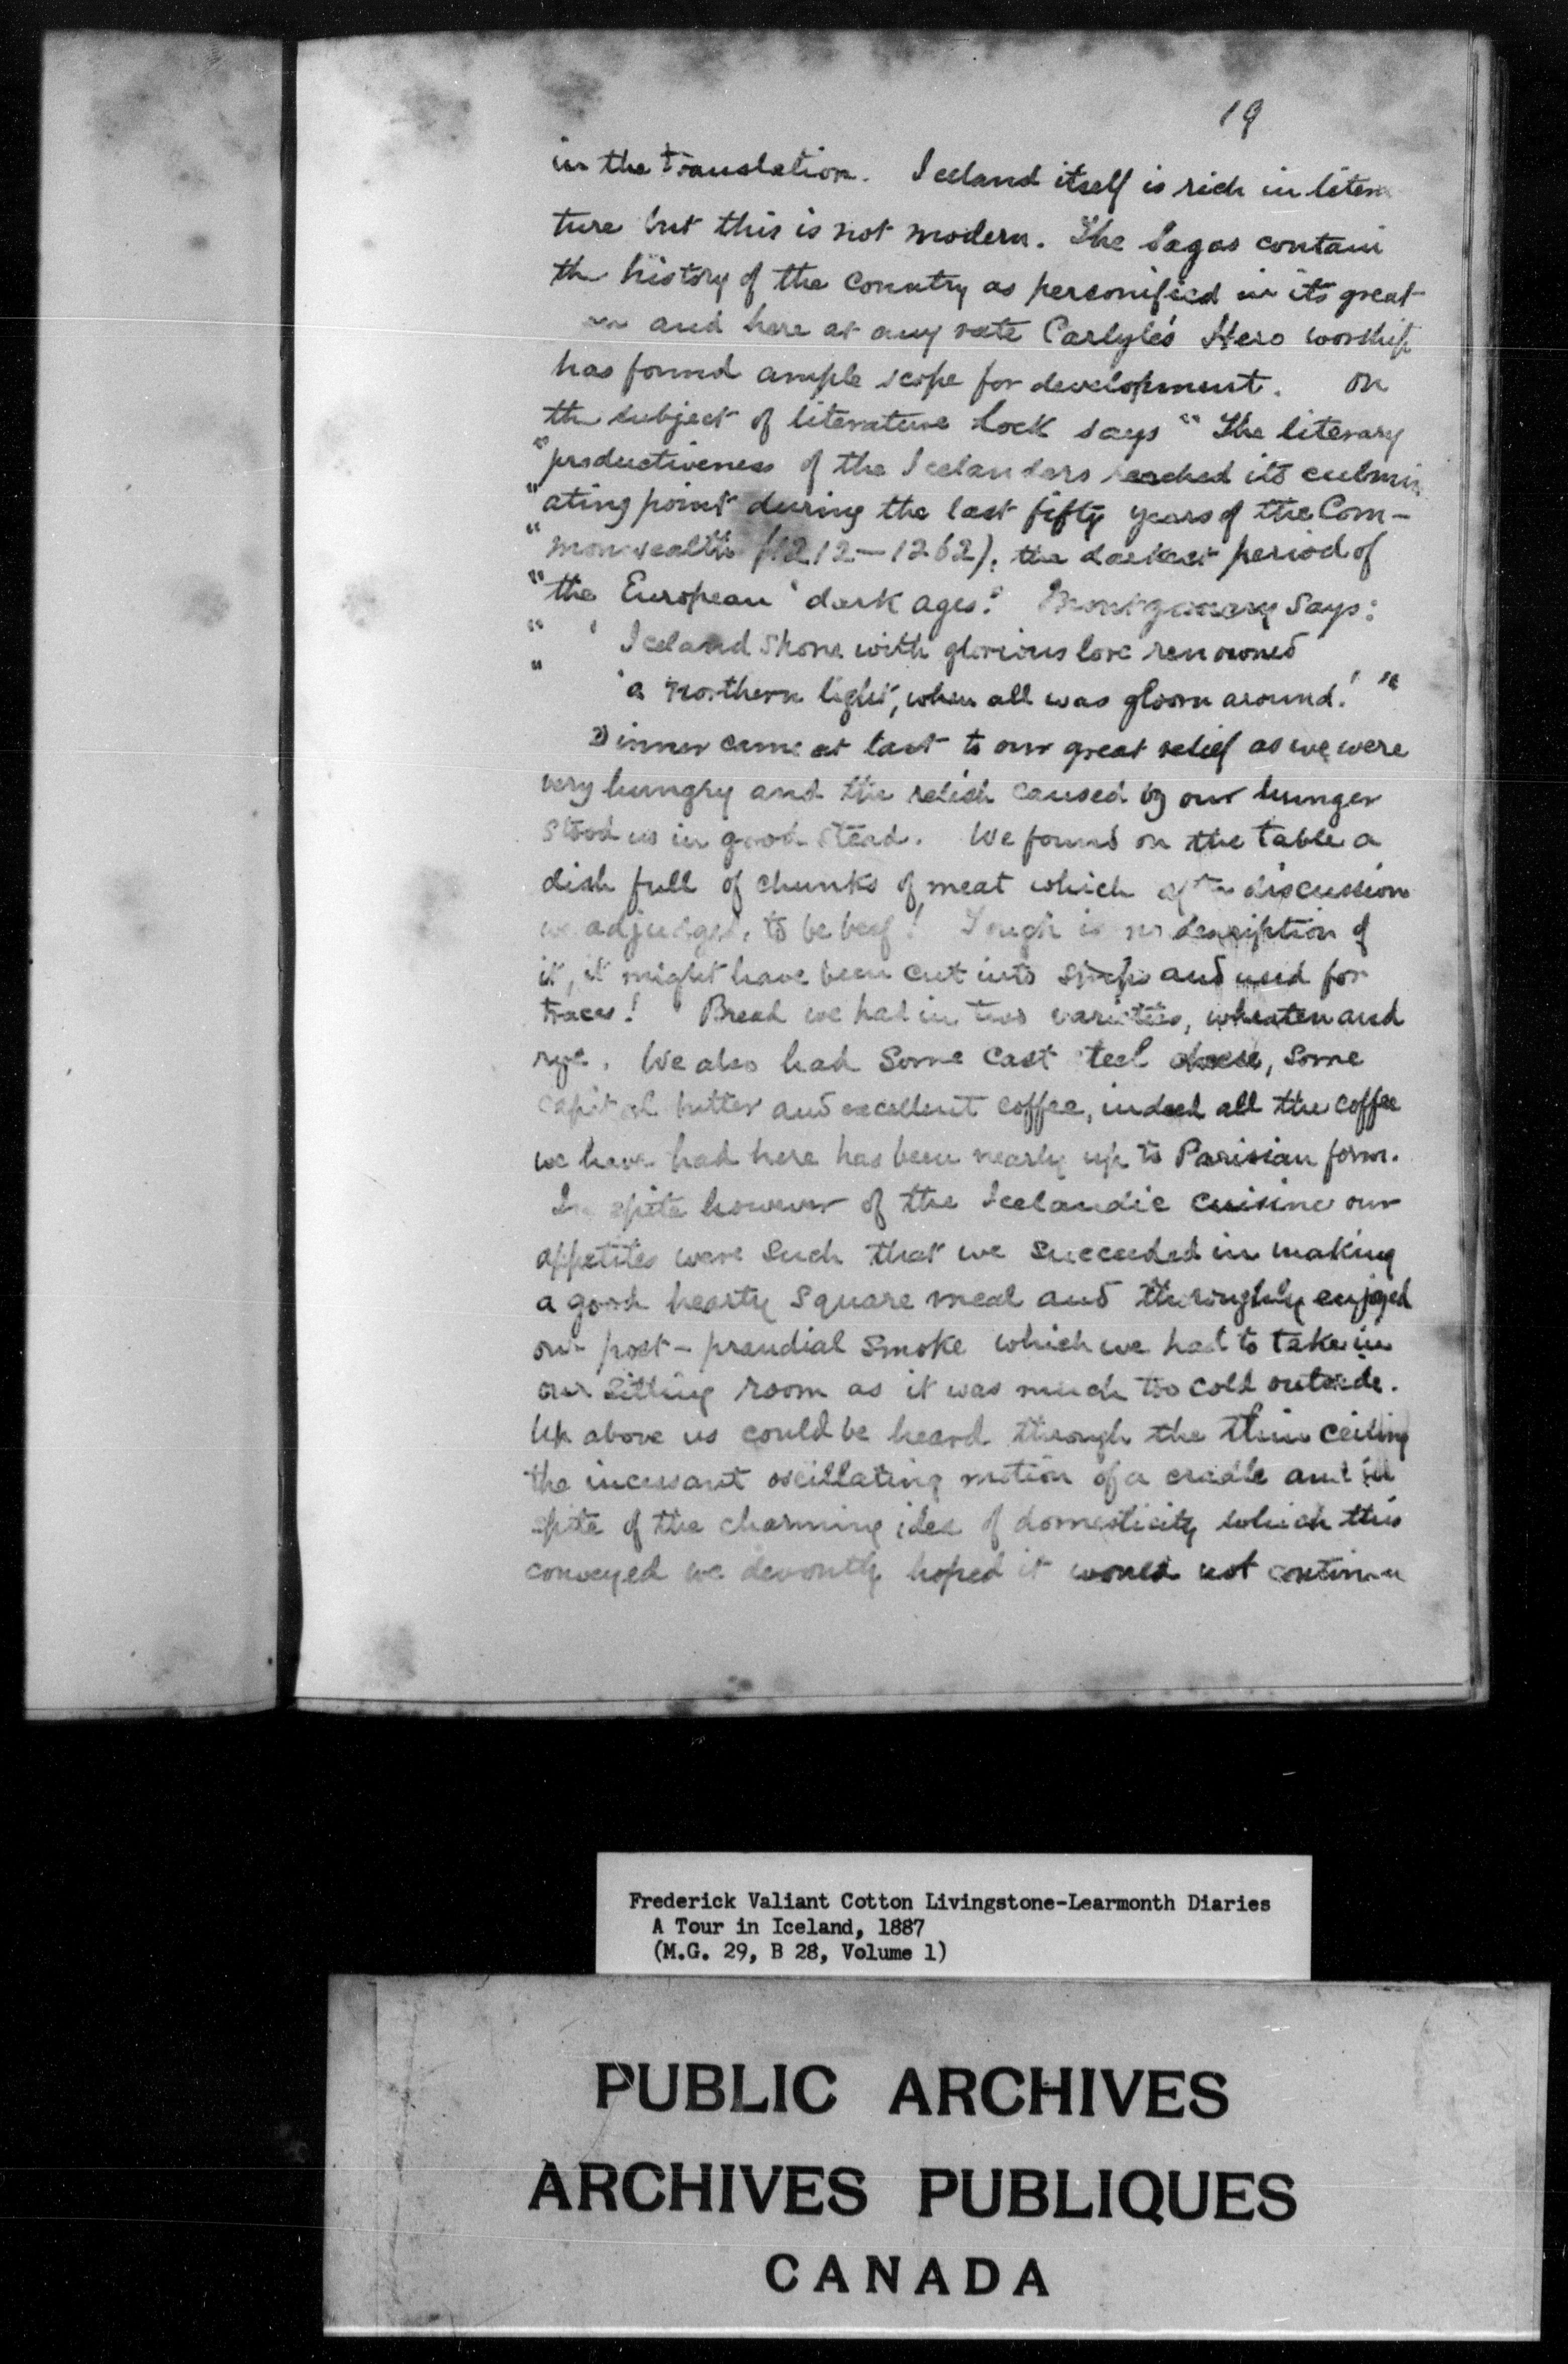 19
in the translation. Iceland itself is rich in litera
ture but this is not modern. The Sagas contain
the history of the country as personified in its great
and here at any rate Carlyle's Hero worship
has found ample scope for development. On
the subject of literature Lock says "The literary
"productiveness of the Icelanders reached its culmin
"ating point during the last fifty years of the Com-
"monwealth (1212-1262), the darkest period of
"the European 'dark ages.' Montgomery says:
" 'Iceland shone with glorious lore renowned
" 'a northern light, when all was gloom around.' "
Dinner came at last to our great relief as we were
very hungry and the relish caused by our hunger
stood us in good stead. We found on the table a
dish full of chunks of meat which after discussion
we adjudged, to be beef! Tough is no description of
it, it might have been cut into strips and used for
traces! Bread we had in two varieties, wheaten and
rye. We also had some cast steel cheese, some
capital butter and excellent coffee, indeed all the coffee
we have had here has been nearly up to Parisian form.
In spite however of the Icelandic cuisine our
appetites were such that we succeeded in making
a good hearty square meal and thoroughly enjoyed
our post-prandial smoke which we had to take in
our sitting room as it was much too cold outside.
Up above us could be heard through the thin ceiling
the incessant oscillating motion of a cradle and in
spite of the charming idea of domesticity which this
conveyed we devoutly hoped it would not continue
Frederick Valiant Cotton Livingstone-Learmonth Diaries
A Tour in Iceland, 1887
(M.G. 29, B 28, Volume 1)
PUBLIC ARCHIVES
ARCHIVES PUBLIQUES
CANADA